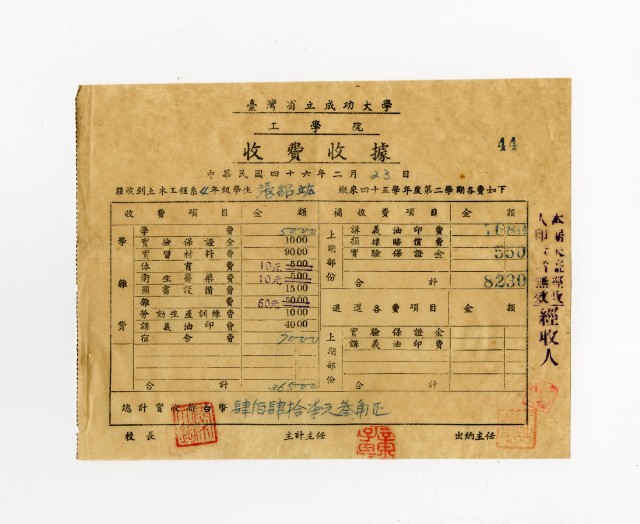 臺灣省立成功大學
工學院
收費收據
44
中華民國四十六年二月23日
茲收到土木工程系4年級學生張紹 繳來四十五學年度第二學期各費如下
收費項目 金額 補收費項目 金額
學雜費
學費 5000
實驗保證金 1000
實習材料費 9000
體育費 10元 500
衛生醫藥費 10元 500
圖書設備費 1500
雜費 60元 5000
勞動生產訓練費 1000
講義油印費 4000
宿舍費 7000
合計 36500
上期部份
講義油印費 7680
損壞賠償費
實驗保證金 550
合計 8230
退還各費項目 金額
上期部份
實驗保證金
講義油印費
合計
總計實收新台幣 肆佰肆拾柒元叁角正
校長 主計主任 出納主任
經收人